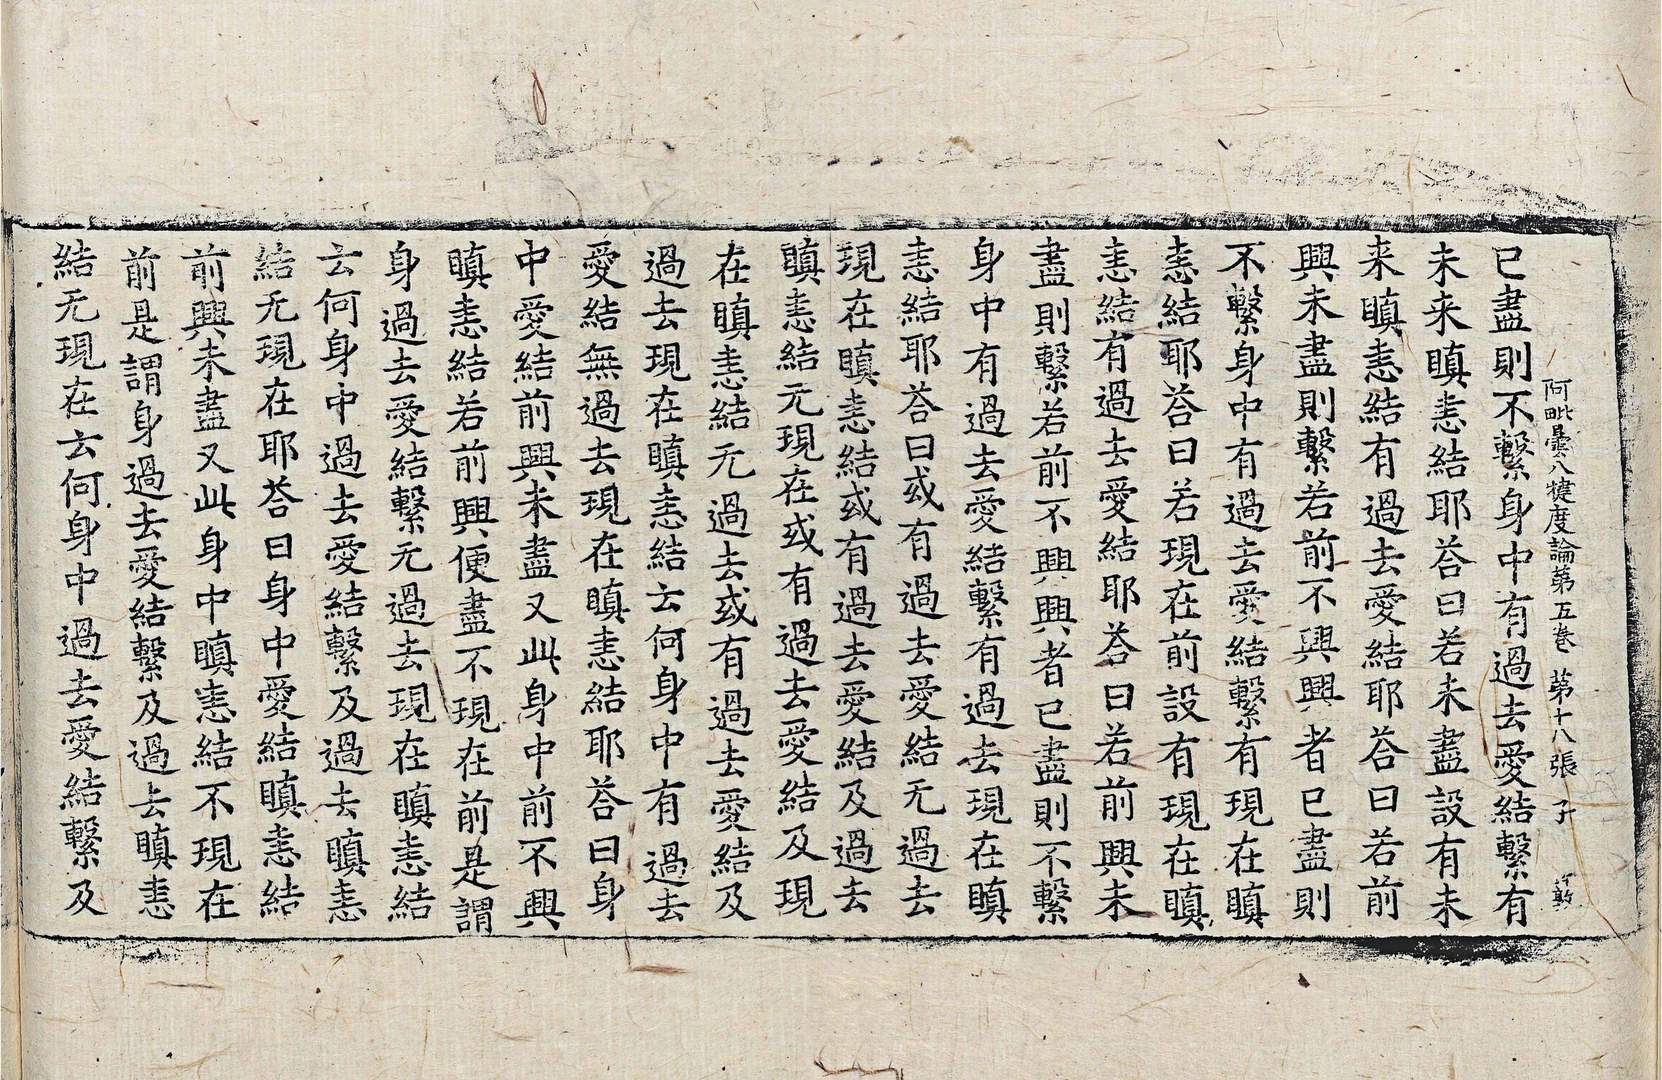 阿毗曇八犍度論第五卷 第十八張 子
已盡則不繫身中有過去愛結繫有
未来瞋恚結耶荅曰若未盡設有未
来瞋恚結有過去愛結耶荅曰若前
興未盡則繫若前不興興者已盡則
不繫身中有過去愛結繫有現在瞋
恚結耶荅曰若現在前設有現在瞋
恚結有過去愛結耶荅曰若前興未
盡則繫若前不興興者已盡則不繫
身中有過去愛結繫有過去現在瞋
恚結耶荅曰或有過去愛結无過去
現在瞋恚結或有過去愛結及過去
瞋恚結无現在或有過去愛結及現
在瞋恚結无過去或有過去愛結及
過去現在瞋恚結云何身中有過去
愛結無過去現在瞋恚結耶荅曰身
中愛結前興未盡又此身中前不興
瞋恚結若前興便盡不現在前是謂
身過去愛結繫无過去現在瞋恚結
云何身中過去愛結繫及過去瞋恚
結无現在耶荅曰身中愛結瞋恚結
前興未盡又此身中瞋恚結不現在
前是謂身過去愛結繫及過去瞋恚
結无現在云何身中過去愛結繫及